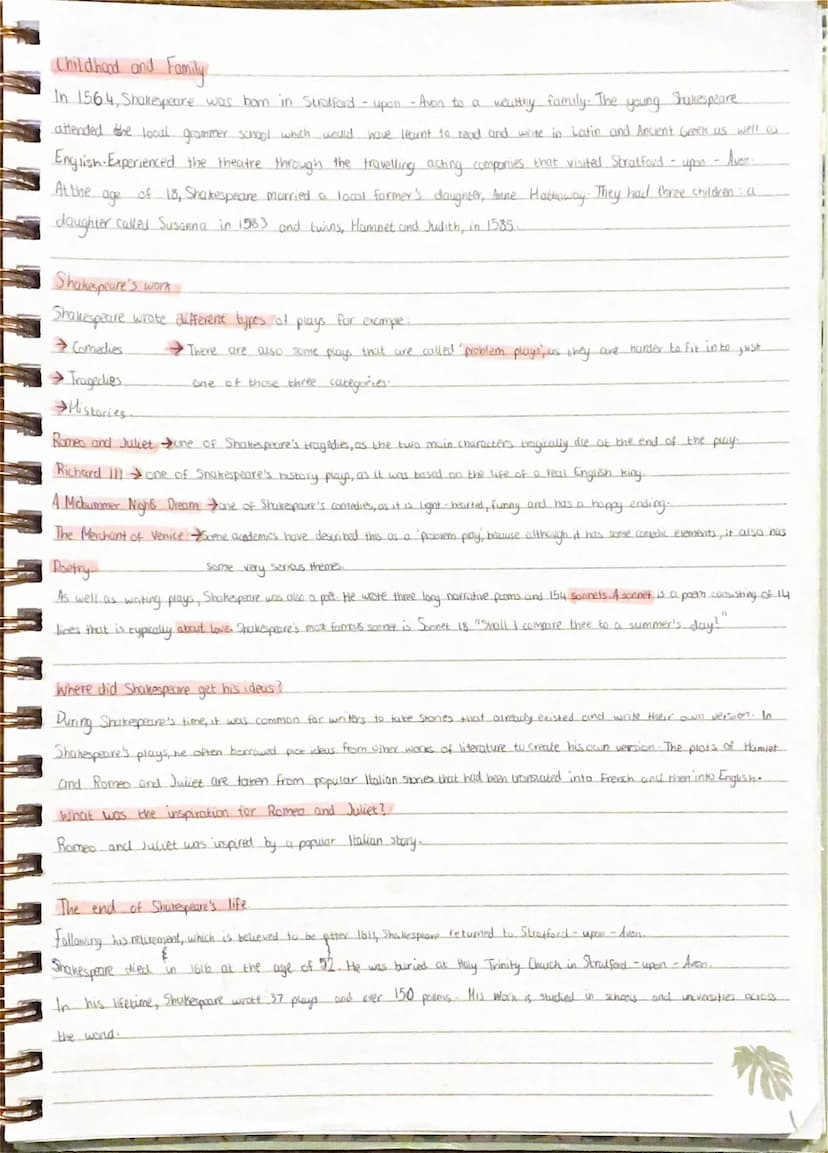 Childhood and Family
In 1564, Shakespeare was born in Stratford - upon - Avon to a wealthy family. The young Shakespeare
attended the local grammer school which would have learnt to read and write in Latin and Ancient Greek as well as
English. Experienced the theatre through the travelling acting companies that visited Stratford - upon - Avon.
At the age of 18, Shakespeare married a local farmer's daughter, Anne Hathaway. They had three children : a
daughter called Susanna in 1583 and twins, Hamnet and Judith, in 1585.
Shakespeare's work
Shakespeare wrote different types of plays for example:
→ Comedies → There are also some plays that are called 'problem plays', as they are harder to fit into just
→ Tragedies one of those three categories.
→ Histories.
Romeo and Juliet → one of Shakespeare's tragedies, as the two main characters tragically die at the end of the play.
Richard III → one of Shakespeare's history plays, as it was based on the life of a real English king.
A Midsummer Night's Dream → one of Shakespeare's comedies, as it is light-hearted, funny and has a happy ending.
The Merchant of Venice → Some academics have described this as a 'problem play', because although it has some comedic elements, it also has
Poetry some very serious themes.
As well as writing plays, Shakespeare was also a poet. He wrote three long narrative poems and 154 sonnets. A sonnet is a poem consisting of 14
lines that is typically about love. Shakespeare's most famous sonnet is Sonnet 18 "Shall I compare thee to a summer's day?"
Where did Shakespeare get his ideas?
During Shakespeare's time, it was common for writers to take stories that already existed and write their own version. In
Shakespeare's plays, he often borrowed plot ideas from other works of literature to create his own version. The plots of Hamlet
and Romeo and Juliet are taken from popular Italian stories that had been translated into French and then into English.
What was the inspiration for Romeo and Juliet?
Romeo and Juliet was inspired by a popular Italian story.
The end of Shakespeare's life
Following his retirement, which is believed to be after 1611, Shakespeare returned to Stratford - upon - Avon.
Shakespeare died in 1616 at the age of 52. He was buried at Holy Trinity Church in Stratford - upon - Avon.
In his lifetime, Shakespeare wrote 37 plays and over 150 poems. His work is studied in schools and universities across
the world.